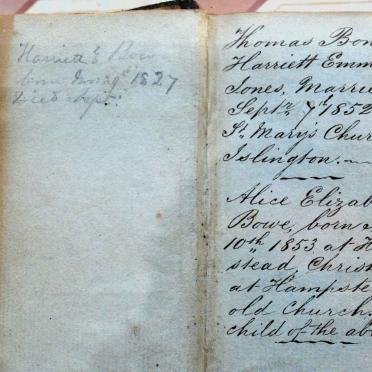 Harriett E Bow
born Nov 9th 1827
Died Sept.
Thomas Bon
Harriett Emm
Jones, Marrie
Septr 7th 1852
St Mary's Chur
Islington.
Alice Elizab
Bowe, born
10th 1853 at H
stead, Christ
at Hampste
old Church.
child of the ab